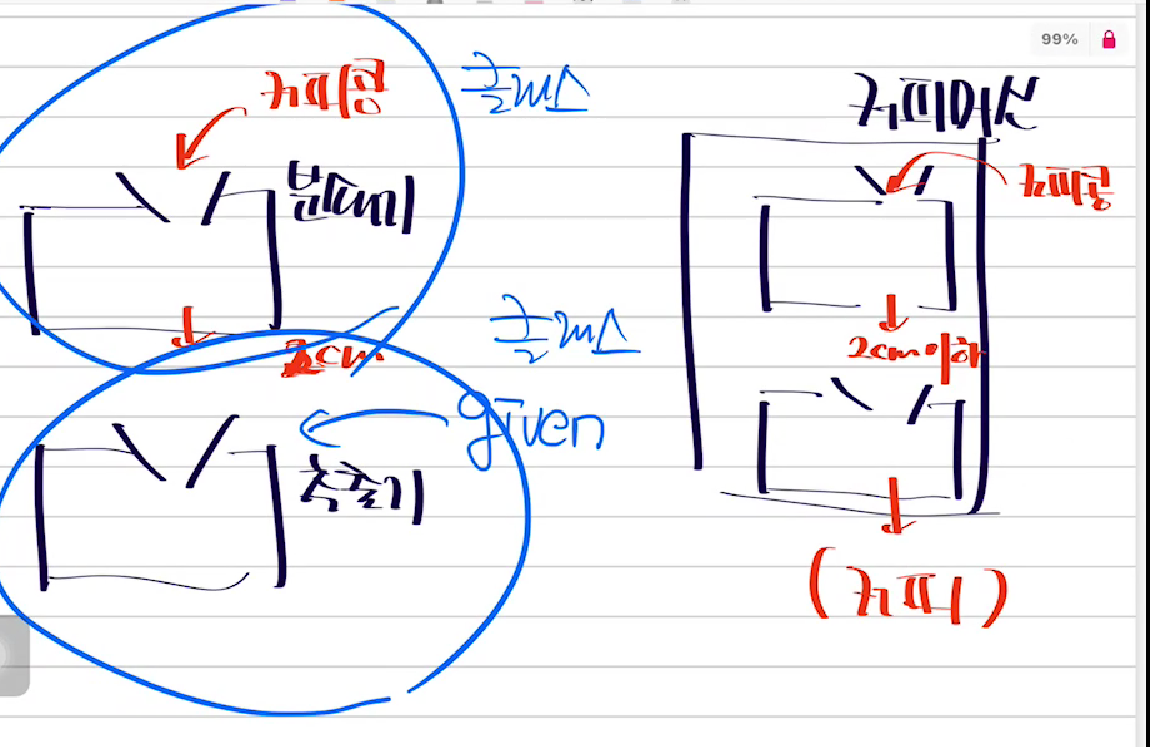 99%
커피콩
클래스
분쇄기
2cm
클래스
given
추출기
커피머신
커피콩
2cm이하
(커피)